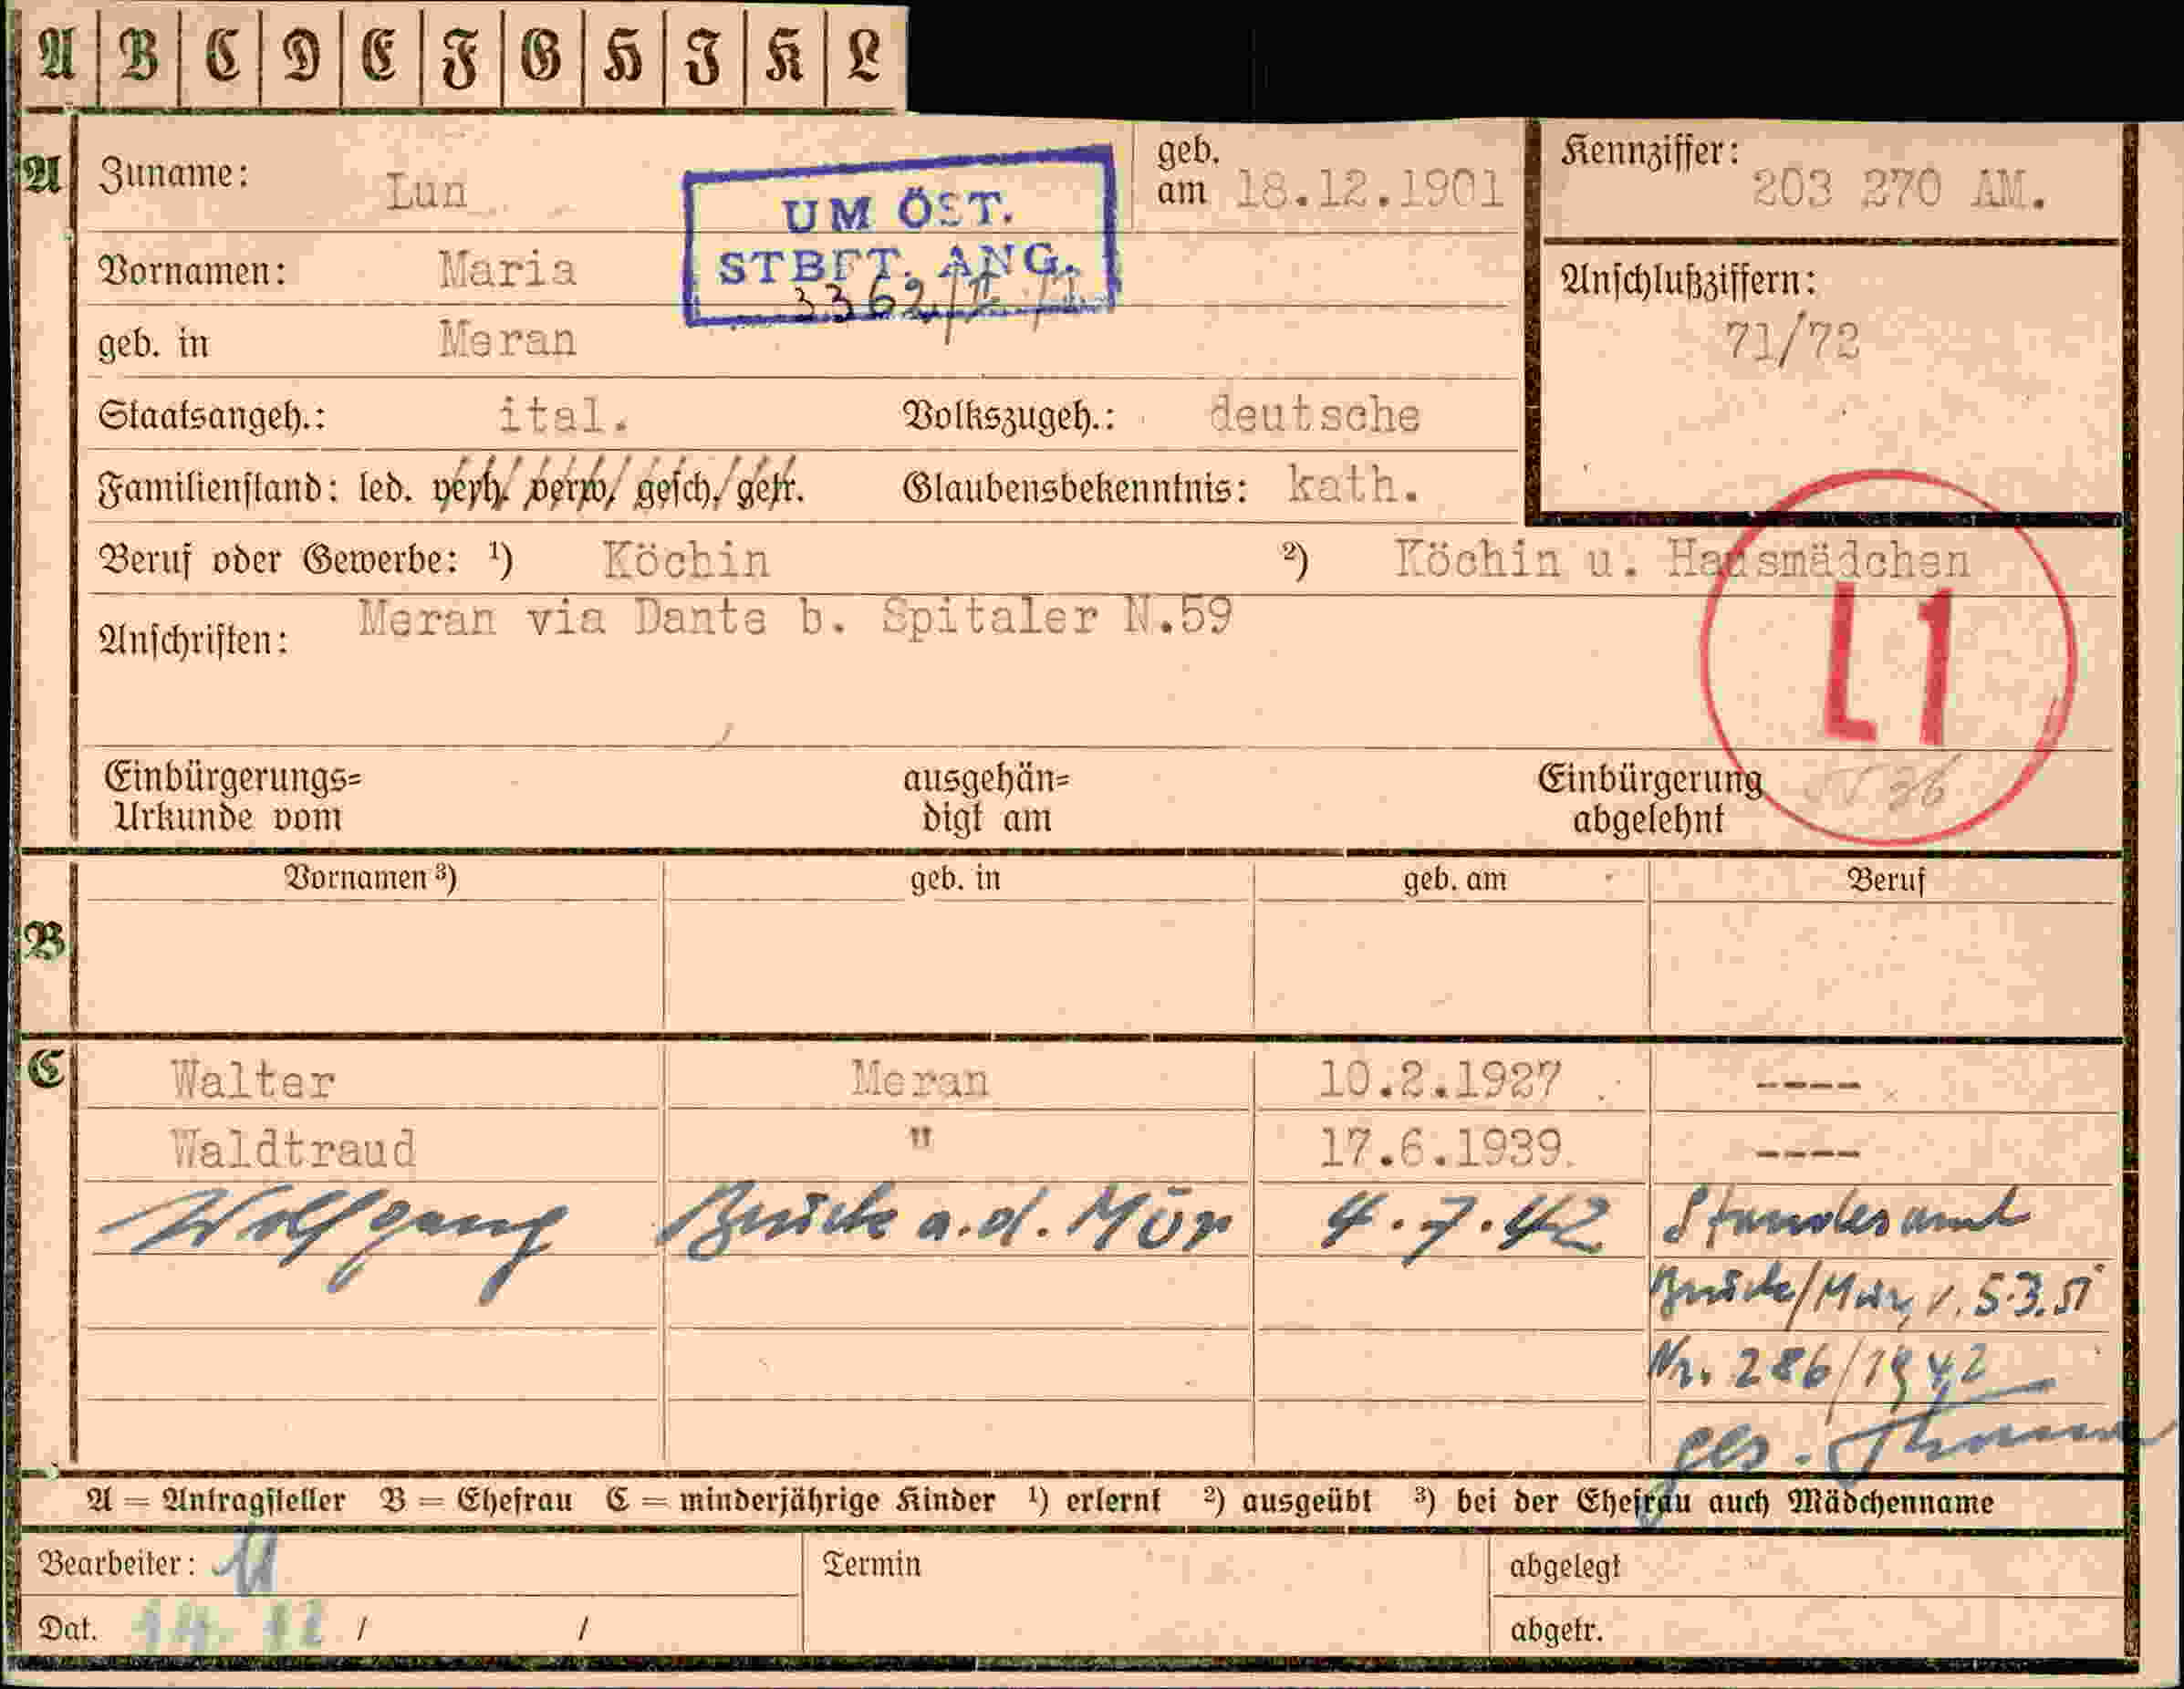 A B C D E F G H I K L
A Zuname: Lun geb. am 18.12.1901 Kennziffer: 203 270 AM.
UM ÖST.
STBFT. ANG.
3362/
Vornamen: Maria
Anschlußziffern:
71/72
geb. in Meran
Staatsangeh.: ital. Volkszugeh.: deutsche
Familienstand: led. verh. verw. gesch. getr. Glaubensbekenntnis: kath.
Beruf oder Gewerbe: ¹) Köchin ²) Köchin u. Hausmädchen
Anschriften: Meran via Dante b. Spitaler N.59
L1
Einbürgerungs= ausgehän= Einbürgerung 36
Urkunde vom digt am abgelehnt
Vornamen ³) geb. in geb. am Beruf
B
C Walter Meran 10.2.1927 ----
Waldtraud " 17.6.1939. ----
Wolfgang Bruck a.d. Mur 4.7.42 Standesamt
Bruck/Mur, v. 5.3.51
Nr. 286/1942
ges.
A = Antragsteller B = Ehefrau C = minderjährige Kinder ¹) erlernt ²) ausgeübt ³) bei der Ehefrau auch Mädchenname
Bearbeiter: Termin abgelegt
Dat. 14. 12 / / abgetr.